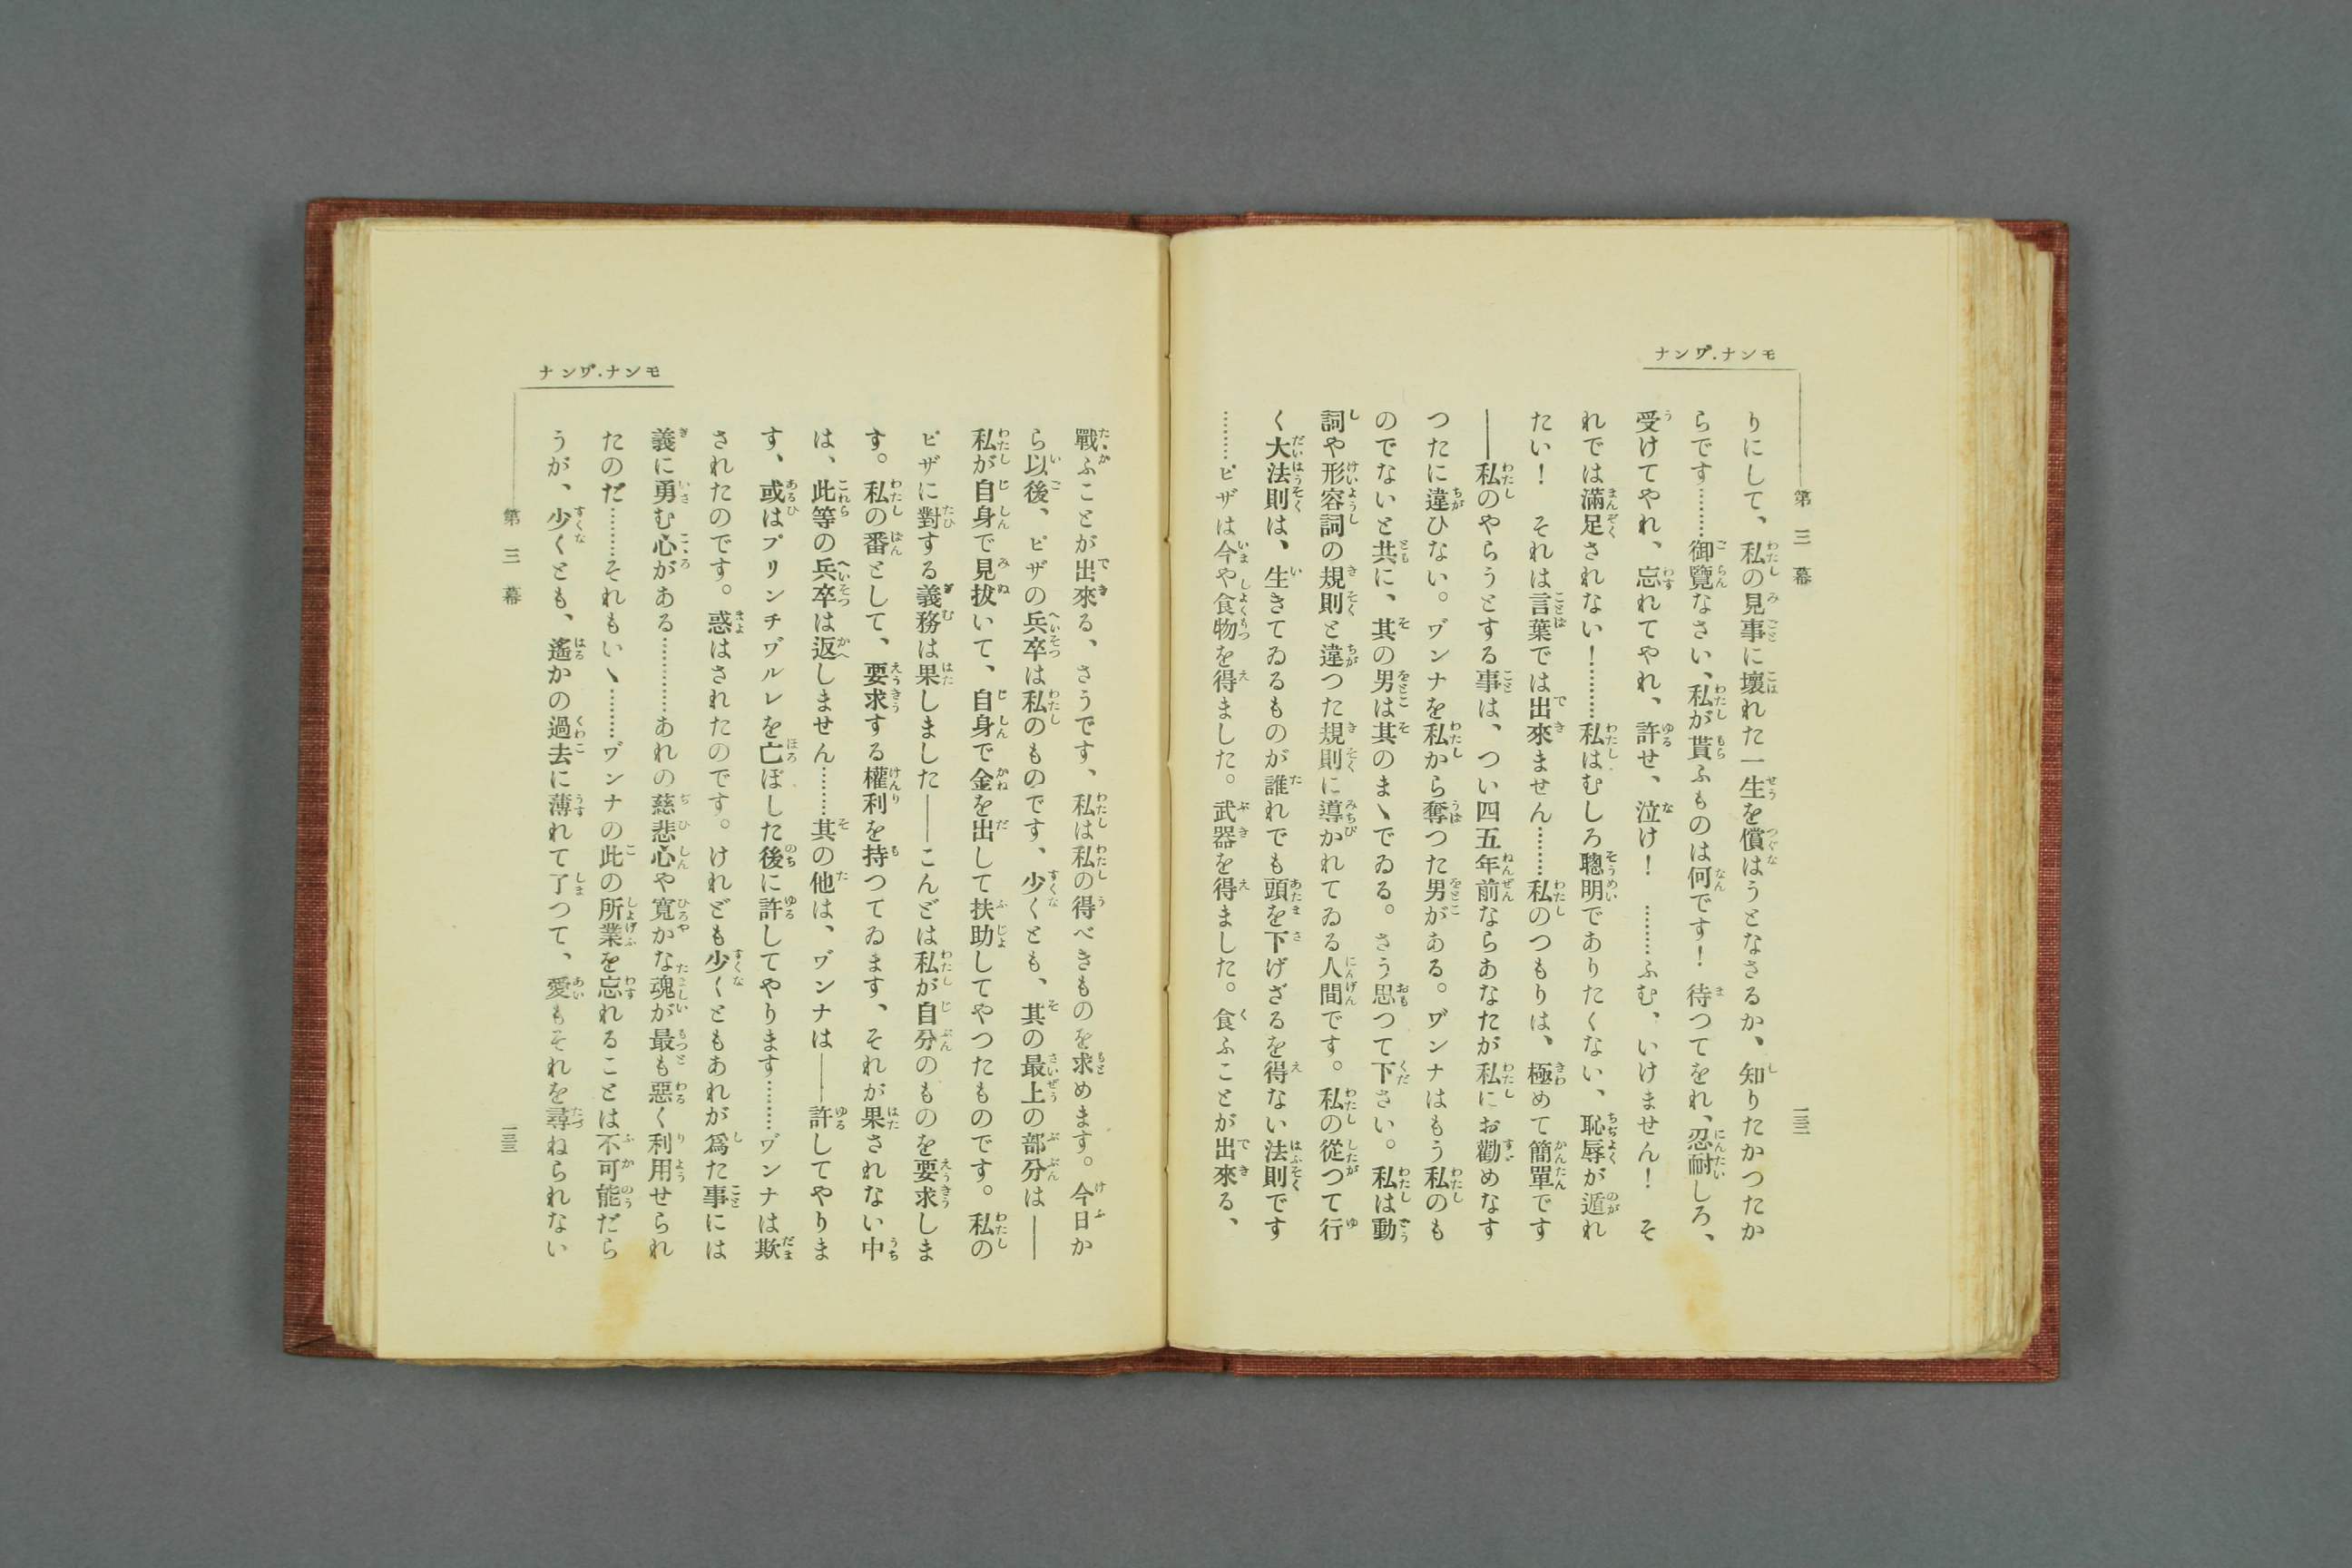 モンナ.ヷンナ
第三幕
一三二
りにして、私の見事に壞れた一生を償はうとなさるか、知りたかつたか
らです………御覽なさい、私が貰ふものは何です！　待つてをれ、忍耐しろ、
受けてやれ、忘れてやれ、許せ、泣け！　………ふむ、いけません！　そ
れでは滿足されない！…………私はむしろ聰明でありたくない、恥辱が遁れ
たい！　それは言葉では出來ません………私のつもりは、極めて簡單です
――私のやらうとする事は、つい四五年前ならあなたが私にお勸めなす
つたに違ひない。ヷンナを私から奪つた男がある。ヷンナはもう私のも
のでないと共に、其の男は其のまゝでゐる。さう思つて下さい。私は動
詞や形容詞の規則と違つた規則に導かれてゐる人間です。私の從つて行
く大法則は、生きてゐるものが誰れでも頭を下げざるを得ない法則です
………ピザは今や食物を得ました。武器を得ました。食ふことが出來る、
モンナ.ヷンナ
第三幕
一三三
戰ふことが出來る、さうです、私は私の得べきものを求めます。今日か
ら以後、ピザの兵卒は私のものです、少くとも、其の最上の部分は――
私が自身で見拔いて、自身で金を出して扶助してやつたものです。私の
ピザに對する義務は果しました――こんどは私が自分のものを要求しま
す。私の番として、要求する權利を持つてゐます、それが果されない中
は、此等の兵卒は返しません………其の他は、ヷンナは――許してやりま
す、或はプリンチヷルレを亡ぼした後に許してやります………ヷンナは欺
されたのです。惑はされたのです。けれども少くともあれが爲た事には
義に勇む心がある…………あれの慈悲心や寬かな魂が最も惡く利用せられ
たのだ………それもいゝ………ヷンナの此の所業を忘れることは不可能だら
うが、少くとも、遙かの過去に薄れて了つて、愛もそれを尋ねられない